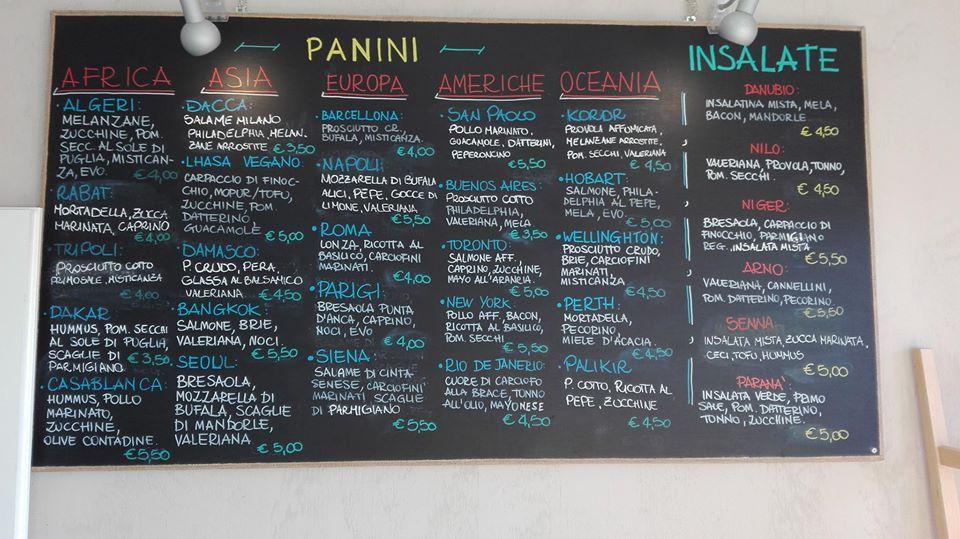 PANINI
AFRICA
• ALGERI:
MELANZANE,
ZUCCHINE, POM.
SECC. AL SOLE DI
PUGLIA, MISTICAN-
ZA, EVO. €4,00
• RABAT:
MORTADELLA, ZUCCA
MARINATA, CAPRINO
€4,00
• TRIPOLI:
PROSCIUTTO COTTO
PRIMOSALE, MISTICANZA
€4,00
• DAKAR
HUMMUS, POM. SECCHI
AL SOLE DI PUGLIA,
SCAGLIE DI €3,50
PARMIGIANO
• CASABLANCA:
HUMMUS, POLLO
MARINATO,
ZUCCHINE,
OLIVE CONTADINE.
€5,50
ASIA
• DACCA:
SALAME MILANO
PHILADELPHIA, MELAN.
ZANE ARROSTITE. €3,50
• LHASA VEGANO:
CARPACCIO DI FINOC-
CHIO, MOPUR/TOFU,
ZUCCHINE, POM.
DATTERINO,
GUACAMOLE €5,00
• DAMASCO:
P. CRUDO, PERA,
GLASSA AL BALSAMICO
VALERIANA. €4,50
• BANGKOK:
SALMONE, BRIE,
VALERIANA, NOCI.
€5,50
• SEOUL:
BRESAOLA,
MOZZARELLA DI
BUFALA, SCAGLIE
DI MANDORLE,
VALERIANA
€5,00
EUROPA
• BARCELLONA:
PROSCIUTTO CR.,
BUFALA, MISTICANZA.
€4,00
• NAPOLI:
MOZZARELLA DI BUFALA
ALICI, PEPE, GOCCE DI
LIMONE, VALERIANA.
€5,50
• ROMA
LONZA, RICOTTA AL
BASILICO, CARCIOFINI
MARINATI.
€4,00
• PARIGI:
BRESAOLA PUNTA
D'ANCA, CAPRINO,
NOCI, EVO
€4,00
• SIENA:
SALAME DI CINTA
SENESE, CARCIOFINI
MARINATI, SCAGLIE
DI PARMIGIANO
€5,50
AMERICHE
• SAN PAOLO
POLLO MARINATO,
GUACAMOLE, DATTERINI,
PEPERONCINO
€5,50
• BUENOS AIRES:
PROSCIUTTO COTTO
PHILADELPHIA,
VALERIANA, MELA
€3,50
• TORONTO:
SALMONE AFF.,
CAPRINO, ZUCCHINE,
MAYO ALL'ARANCIA.
€5,00
• NEW YORK:
POLLO AFF., BACON,
RICOTTA AL BASILICO,
POM. SECCHI
€5,50
• RIO DE JANERIO:
CUORE DI CARCIOFO
ALLA BRACE, TONNO
ALL'OLIO, MAYONESE
€4,50
OCEANIA
• KOROR
PROVOLA AFFUMICATA,
MELANZANE ARROSTITE,
POM. SECCHI, VALERIANA
€4,50
• HOBART:
SALMONE, PHILA-
DELPHIA AL PEPE,
MELA, EVO.
€5,00
• WELLINGHTON:
PROSCIUTTO CRUDO,
BRIE, CARCIOFINI
MARINATI,
MISTICANZA
€4,50
• PERTH:
MORTADELLA,
PECORINO,
MIELE D'ACACIA.
€4,50
• PALIKIR
P. COTTO, RICOTTA AL
PEPE, ZUCCHINE
€4,50
INSALATE
DANUBIO:
INSALATINA MISTA, MELA,
BACON, MANDORLE
€4,50
NILO:
VALERIANA, PROVOLA, TONNO,
POM. SECCHI.
€4,50
NIGER:
BRESAOLA, CARPACCIO DI
FINOCCHIO, PARMIGIANO
REG., INSALATA MISTA
€5,50
ARNO:
VALERIANA, CANNELLINI,
POM. DATTERINO, PECORINO.
€5,50
SENNA:
INSALATA MISTA, ZUCCA MARINATA,
CECI, TOFU, HUMMUS
€5,00
PARANÀ:
INSALATA VERDE, PRIMO
SALE, POM. DATTERINO,
TONNO, ZUCCHINE.
€5,00